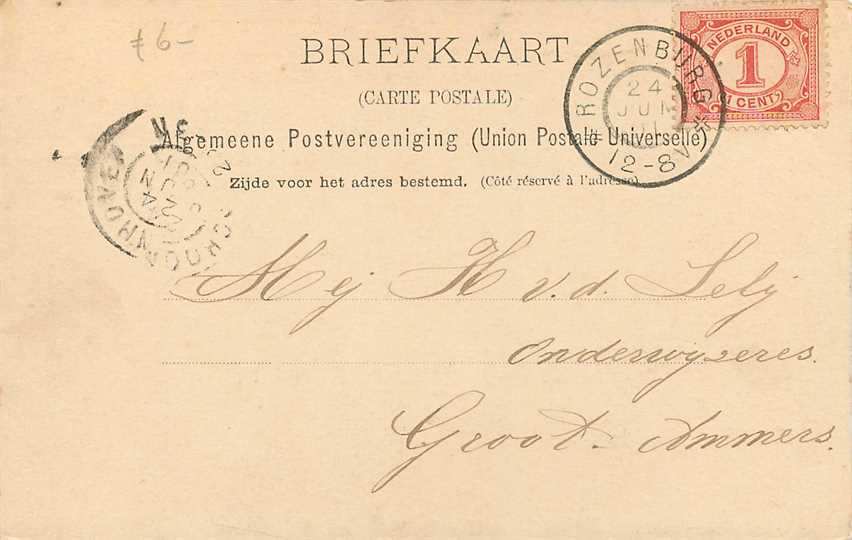 f 6-
BRIEFKAART
(CARTE POSTALE)
Algemeene Postvereeniging (Union Postale Universelle)
Zijde voor het adres bestemd. (Côté réservé à l'adresse)
NEDERLAND
1
1 CENT
ROZENBURG
24
JUN
12-8V
Mej H v.d. Lely
Onderwyseres.
Groot-Ammers.